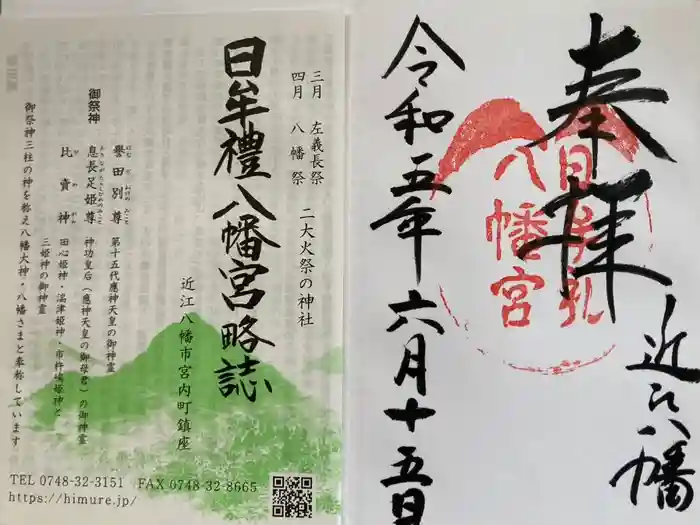 奉拝
近江八幡
日牟礼
八幡宮
令和五年六月十五日
三月 左義長祭
四月 八幡祭
二大火祭の神社
日牟禮八幡宮略誌
近江八幡市宮内町鎮座
御祭神
誉田別尊 第十五代應神天皇の御神霊
息長足姫尊 神功皇后（應神天皇の御母君）の御神霊
比賣神 田心姫神・湍津姫神・市杵嶋姫神と
三姫神の御神霊
御祭神三柱の神を称え八幡大神・八幡さまと奉称しています
TEL 0748-32-3151 FAX 0748-32-8665
https://himure.jp/